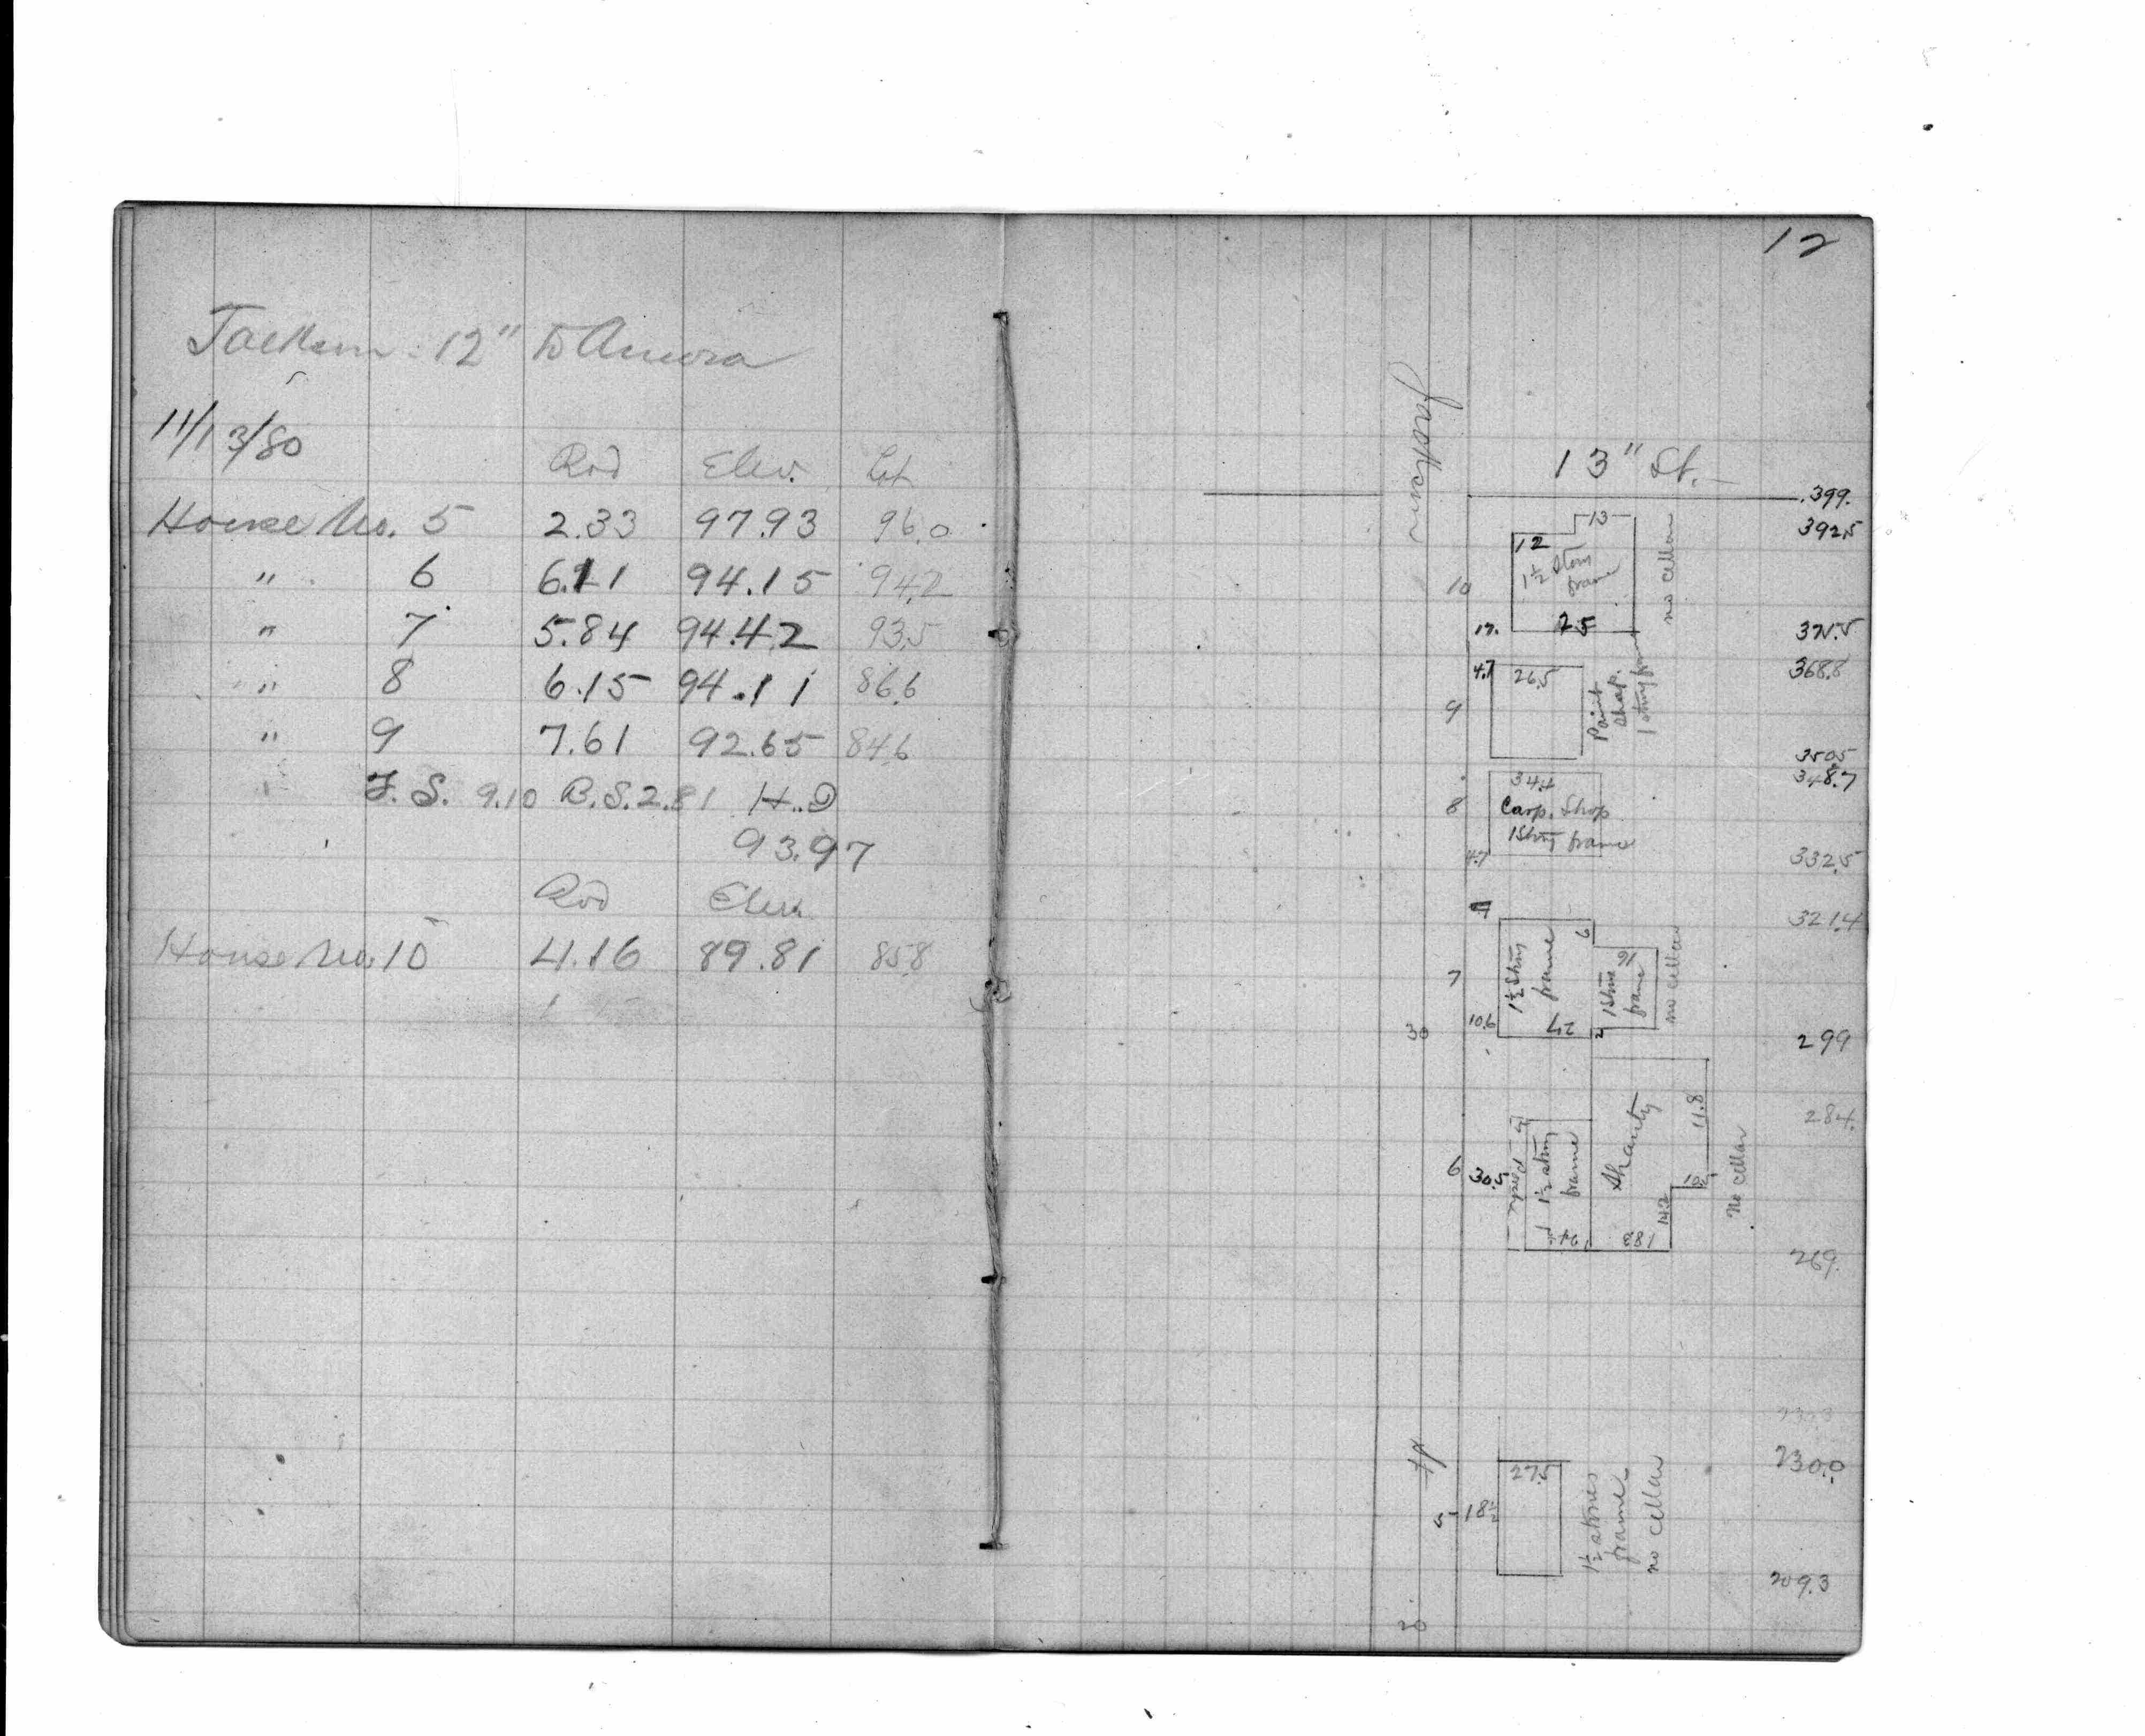 Jackson. 12" to Aurora
11/13/80
Rod Elev. Lot
House No. 5 2.33 97.93 96.0
" 6 6.11 94.15 94.2
" 7 5.84 94.42 93.5
" 8 6.15 94.11 86.6
" 9 7.61 92.65 84.6
" F.S. 9.10 B.S. 2.81 H.I
93.97
Rod Elev.
House No. 10 4.16 89.81 85.8
12
Jackson
13" St.
399.
392.5
13
12
1½ Story
frame
no cellar
10
17.
25
371.5
368.8
4.7
26.5
9
Paint
Shop.
1 story frame
350.5
348.7
34.4
8
Carp. Shop
1 Story frame
4.7
332.5
321.4
7
1½ Story
frame
6
16
1 Story
frame
no cellar
30
10.6
27
2
299
284.
6
30.5
Porch
5
1½ story
frame
Shanty
11.8
no cellar
14.2
18.3
269.
230.3
230.0
St
5
18½
27.5
1½ stories
frame
no cellar
209.3